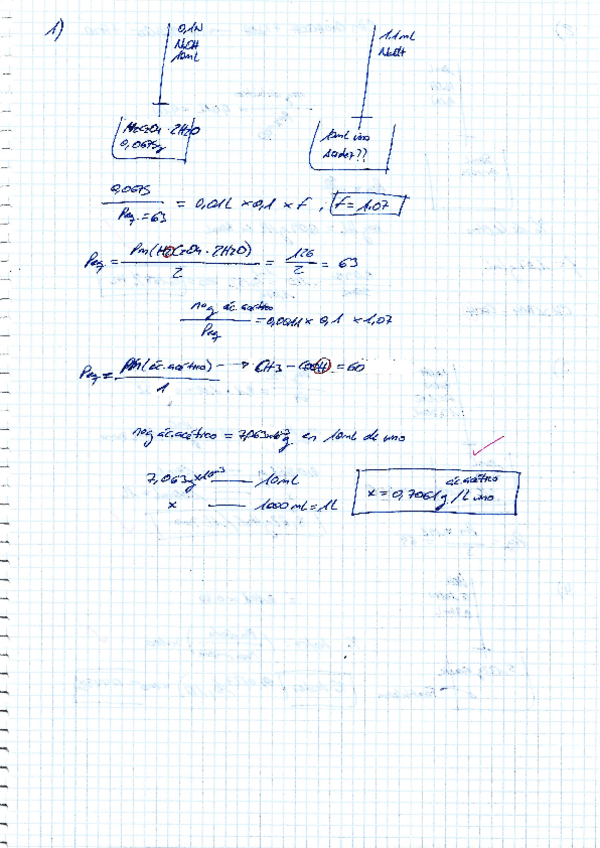 1)
0,1N
NaOH
10mL
1.1mL
NaOH
H2C2O4 · 2H2O
0,0675g
10mL vino
Acidez??
0,0675 / Peq. = 63 = 0,01L × 0,1 × f , f = 1.07
Peq = Pm(H2C2O4 · 2H2O) / 2 = 126 / 2 = 63
mg ác. acético / Peq = 0,0011 × 0,1 × 1,07
Peq = Pm(ác. acético) / 1 → CH3 - COOH = 60
mg ác. acético = 7,063×10⁻³ g en 10mL de vino
7,063g×10⁻³ —— 10mL
x —— 1000mL = 1L
x = 0,7061g ác. acético / L vino